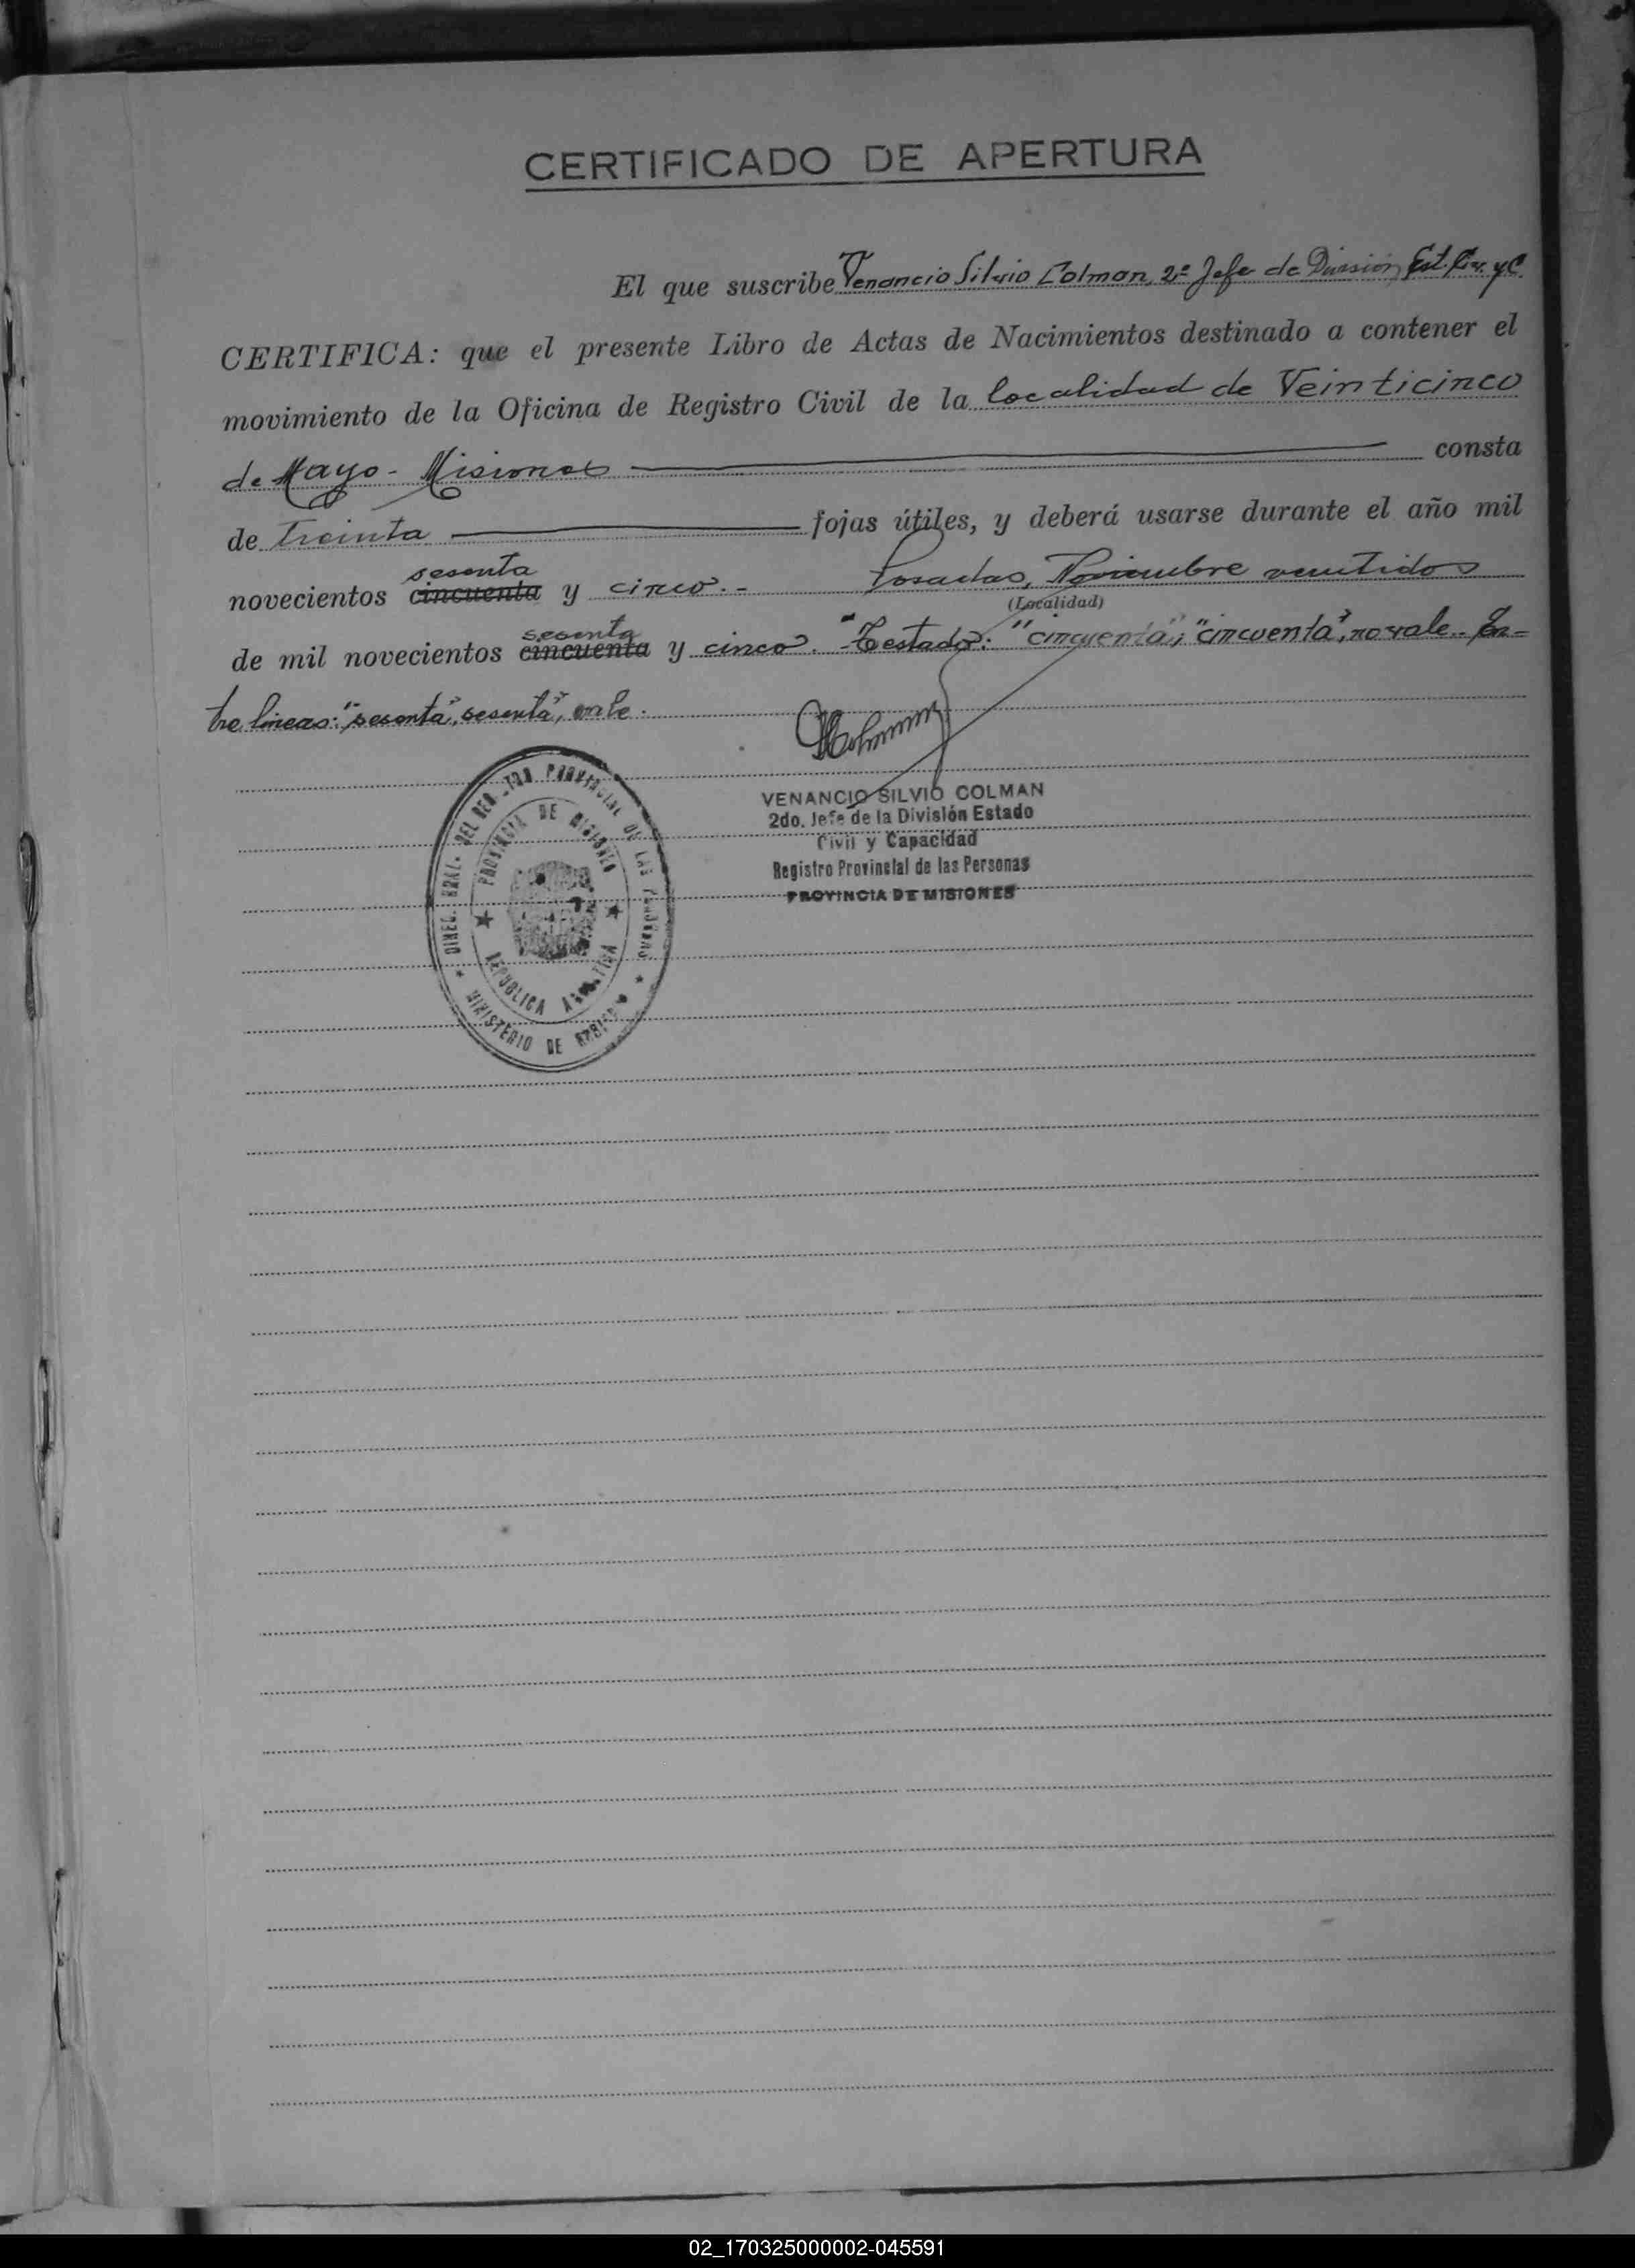 CERTIFICADO DE APERTURA
El que suscribe Venancio Silvio Colman, 2º Jefe de División Est. Civ. y C.
CERTIFICA: que el presente Libro de Actas de Nacimientos destinado a contener el
movimiento de la Oficina de Registro Civil de la localidad de Veinticinco
de Mayo - Misiones consta
de treinta fojas útiles, y deberá usarse durante el año mil
sesenta
novecientos cincuenta y cinco.- Posadas, Noviembre veintidos
(Localidad)
sesenta
de mil novecientos cincuenta y cinco. -Testado: "cincuenta"; "cincuenta", no vale. En=
tre líneas: "sesenta", sesenta", vale.
VENANCIO SILVIO COLMAN
2do. Jefe de la División Estado
Civil y Capacidad
Registro Provincial de las Personas
PROVINCIA DE MISIONES
DIREC. GRAL. DEL REGISTRO PROVINCIAL DE LAS PERSONAS
PROVINCIA DE MISIONES
REPUBLICA ARGENTINA
MINISTERIO DE GOBIERNO
02_170325000002-045591